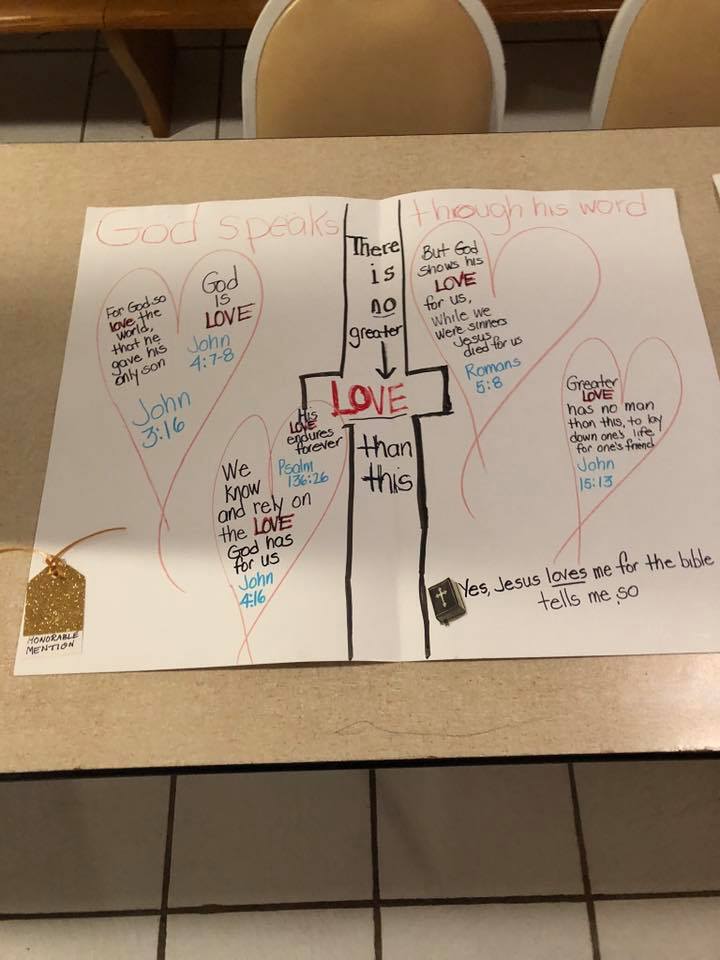 God speaks through his word
For God so
love the
world,
that he
gave his
only son
John
3:16
God
is
LOVE
John
4:7-8
We
know
and rely on
the LOVE
God has
for us
John
4:16
His
LOVE
endures
forever
Psalm
136:26
There
is
no
greater
LOVE
than
this
But God
shows his
LOVE
for us,
while we
were sinners
Jesus
died for us
Romans
5:8
Greater
LOVE
has no man
than this, to lay
down one's life
for one's friend
John
15:13
Yes, Jesus loves me for the bible
tells me so
HONORABLE
MENTION